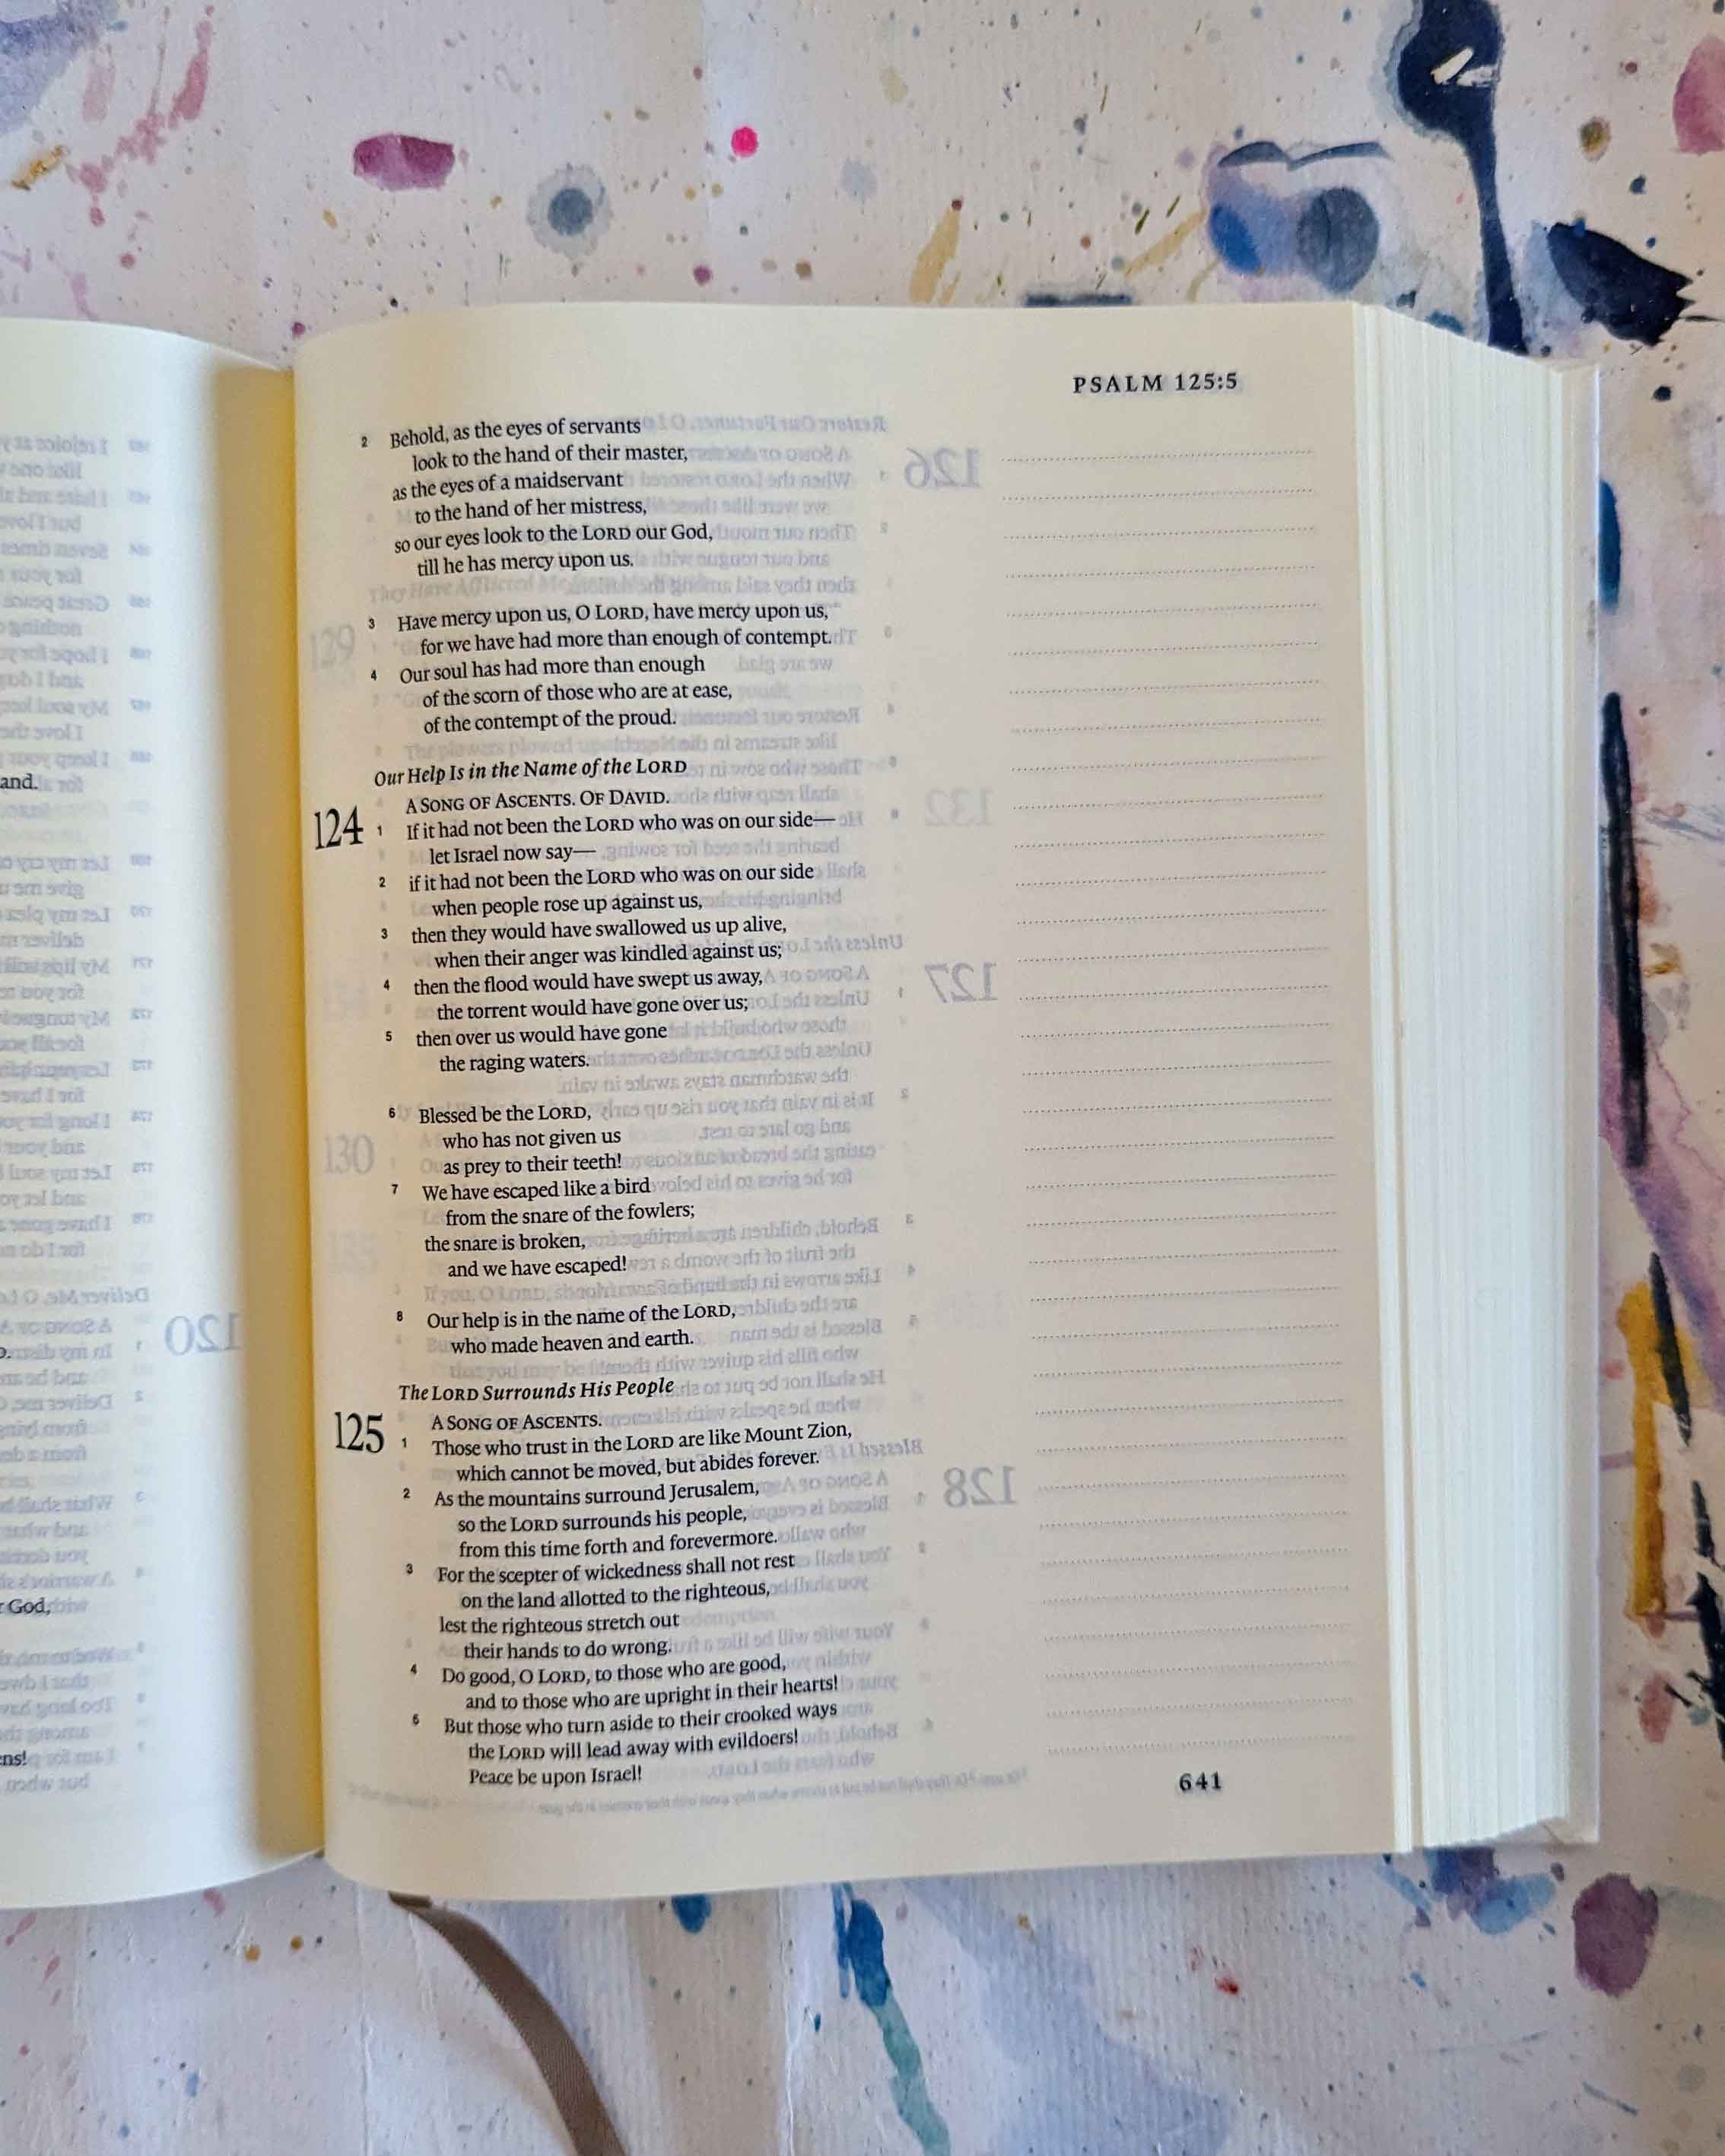 and.
God,
ns!
PSALM 125:5
2 Behold, as the eyes of servants
look to the hand of their master,
as the eyes of a maidservant
to the hand of her mistress,
so our eyes look to the LORD our God,
till he has mercy upon us.
3 Have mercy upon us, O LORD, have mercy upon us,
for we have had more than enough of contempt.
4 Our soul has had more than enough
of the scorn of those who are at ease,
of the contempt of the proud.
Our Help Is in the Name of the LORD
A SONG OF ASCENTS. OF DAVID.
124 1 If it had not been the LORD who was on our side—
let Israel now say—
2 if it had not been the LORD who was on our side
when people rose up against us,
3 then they would have swallowed us up alive,
when their anger was kindled against us;
4 then the flood would have swept us away,
the torrent would have gone over us;
5 then over us would have gone
the raging waters.
6 Blessed be the LORD,
who has not given us
as prey to their teeth!
7 We have escaped like a bird
from the snare of the fowlers;
the snare is broken,
and we have escaped!
8 Our help is in the name of the LORD,
who made heaven and earth.
The LORD Surrounds His People
A SONG OF ASCENTS.
125 1 Those who trust in the LORD are like Mount Zion,
which cannot be moved, but abides forever.
2 As the mountains surround Jerusalem,
so the LORD surrounds his people,
from this time forth and forevermore.
3 For the scepter of wickedness shall not rest
on the land allotted to the righteous,
lest the righteous stretch out
their hands to do wrong.
4 Do good, O LORD, to those who are good,
and to those who are upright in their hearts!
5 But those who turn aside to their crooked ways
the LORD will lead away with evildoers!
Peace be upon Israel!
641